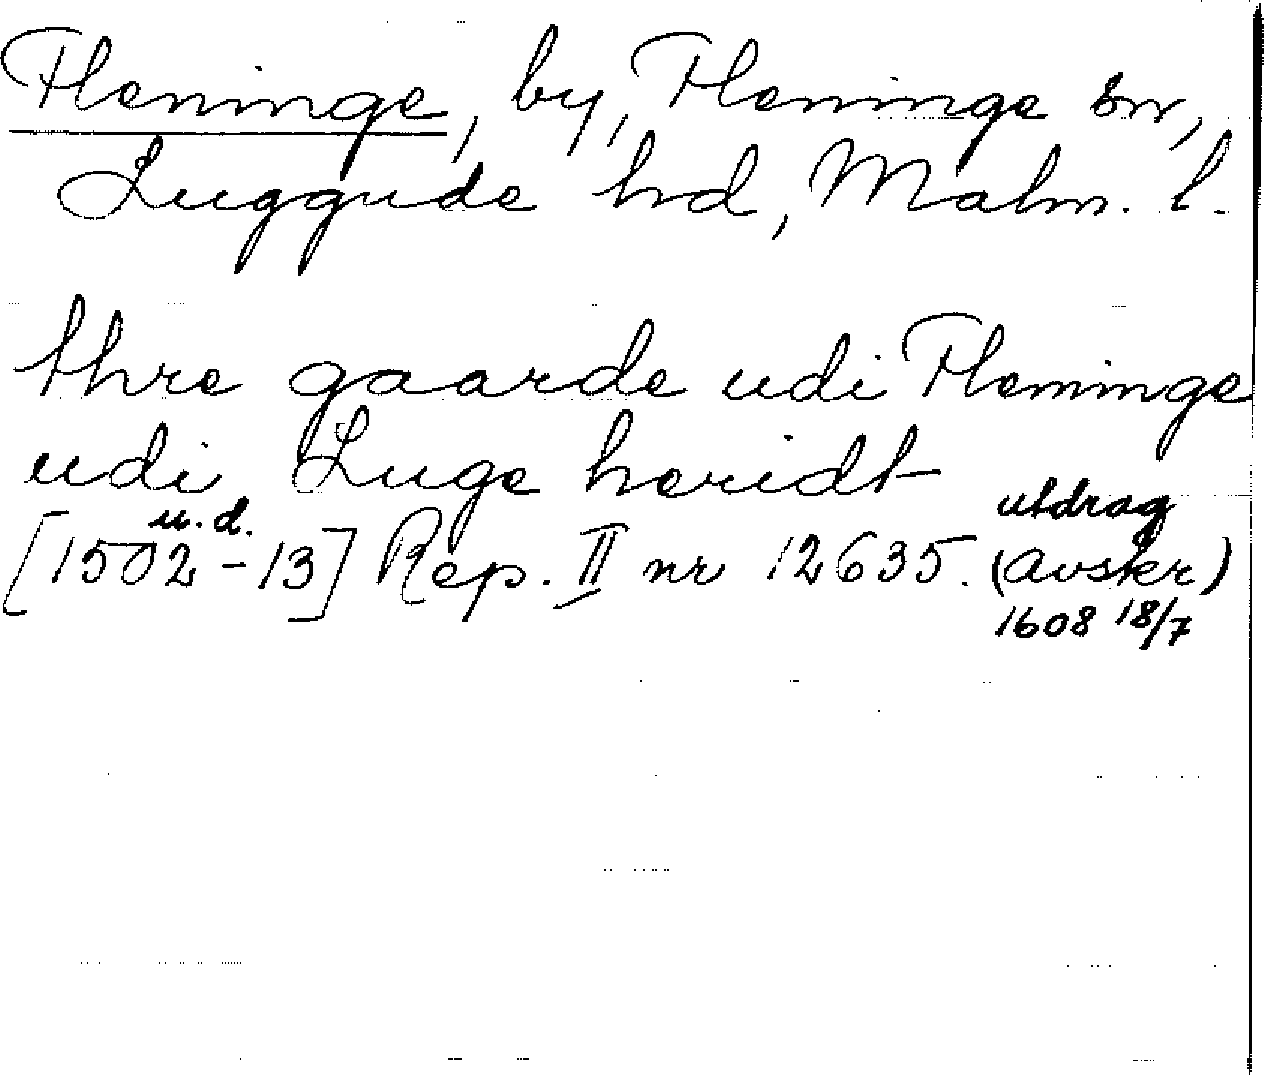 Fleninge, by, Fleninge sn,
Luggude hd, Malm. l.
thre gaarde udi Fleninge
udi Luge heridt
u.d. utdrag
[1502-13] Rep. II nr 12635. (avskr)
1608 18/7